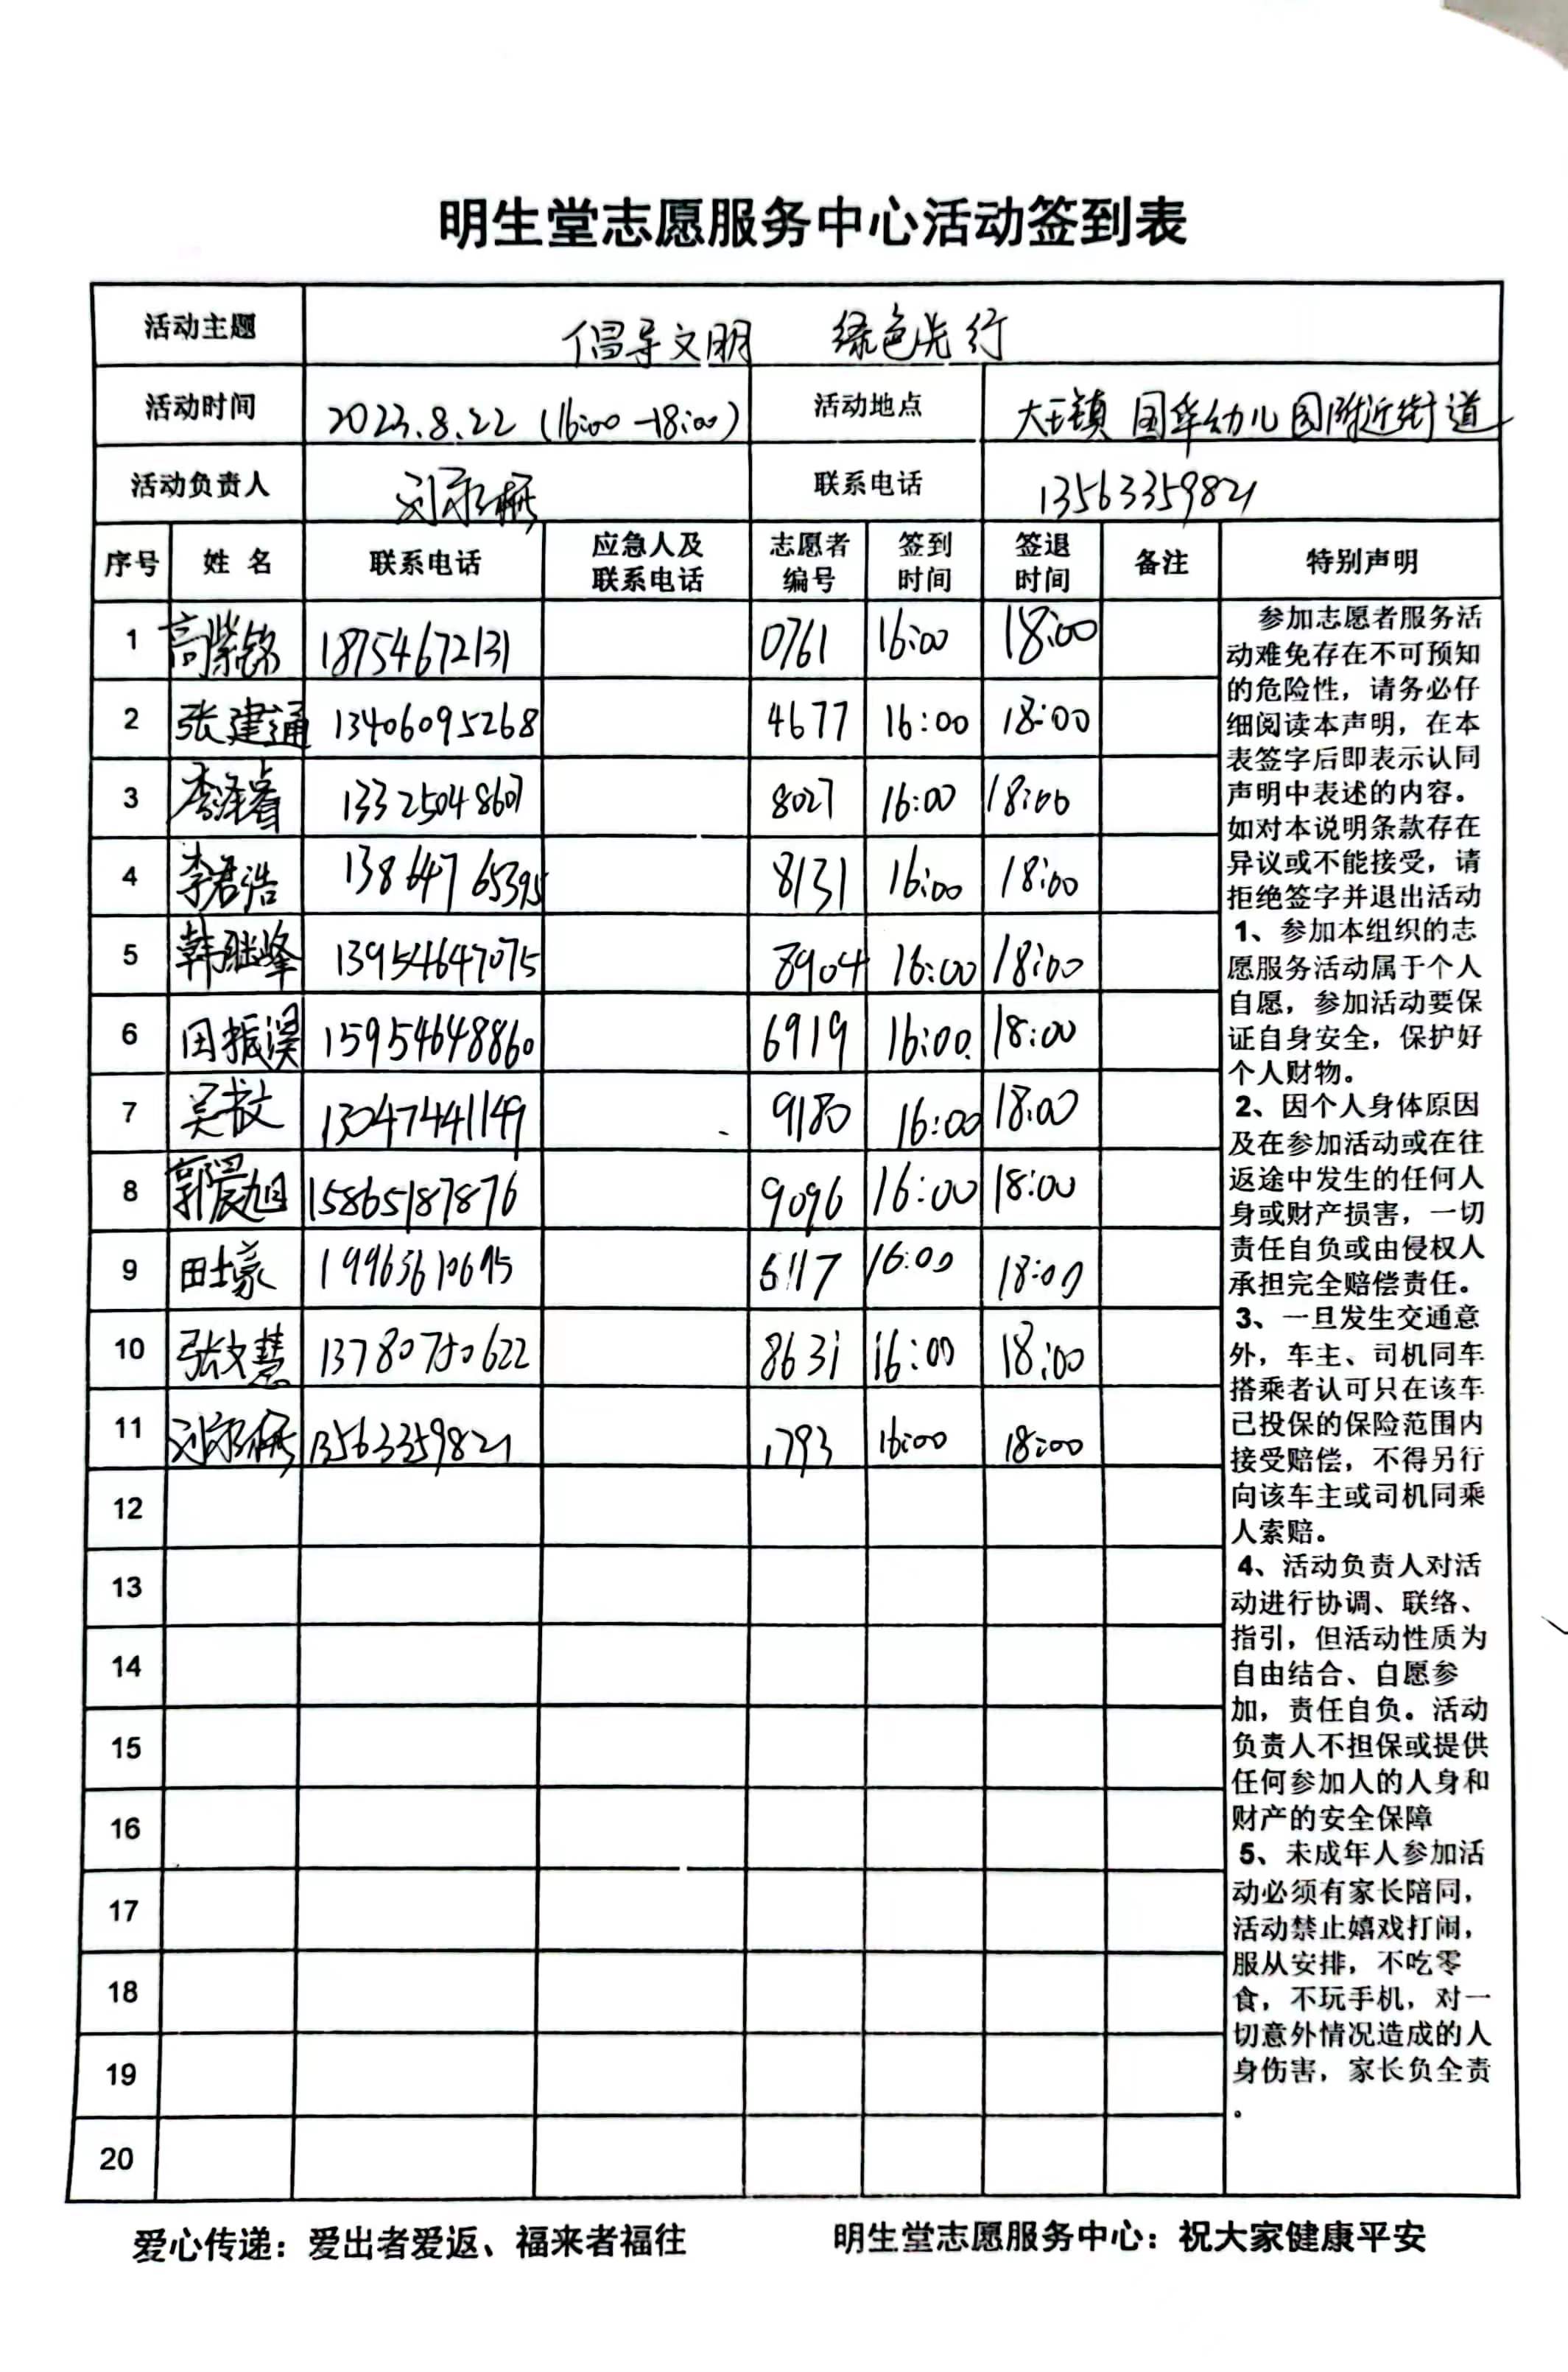 明生堂志愿服务中心活动签到表
活动主题 倡导文明 绿色先行
活动时间 2023.8.22 (16:00-18:00) 活动地点 大王镇 国华幼儿园附近街道
活动负责人 联系电话 13563359821
序号 姓名 联系电话 应急人及联系电话 志愿者编号 签到时间 签退时间 备注 特别声明
1 高紫铭 18754672131 0761 16:00 18:00
2 张建通 13406095268 4677 16:00 18:00
3 李泽睿 13325048607 8027 16:00 18:00
4 李君浩 13864765395 8131 16:00 18:00
5 韩继峰 13954647075 8904 16:00 18:00
6 田振溟 15954648860 6919 16:00 18:00
7 吴敌 13047441149 9180 16:00 18:00
8 郭晨旭 15865187876 9096 16:00 18:00
9 田士豪 19963610695 6117 16:00 18:00
10 张文慧 13780750622 8631 16:00 18:00
11 13563359821 1793 16:00 18:00
12
13
14
15
16
17
18
19
20
参加志愿者服务活
动难免存在不可预知
的危险性，请务必仔
细阅读本声明，在本
表签字后即表示认同
声明中表述的内容。
如对本说明条款存在
异议或不能接受，请
拒绝签字并退出活动
1、参加本组织的志
愿服务活动属于个人
自愿，参加活动要保
证自身安全，保护好
个人财物。
2、因个人身体原因
及在参加活动或在往
返途中发生的任何人
身或财产损害，一切
责任自负或由侵权人
承担完全赔偿责任。
3、一旦发生交通意
外，车主、司机同车
搭乘者认可只在该车
已投保的保险范围内
接受赔偿，不得另行
向该车主或司机同乘
人索赔。
4、活动负责人对活
动进行协调、联络、
指引，但活动性质为
自由结合、自愿参
加，责任自负。活动
负责人不担保或提供
任何参加人的人身和
财产的安全保障
5、未成年人参加活
动必须有家长陪同，
活动禁止嬉戏打闹，
服从安排，不吃零
食，不玩手机，对一
切意外情况造成的人
身伤害，家长负全责
。
爱心传递：爱出者爱返、福来者福往 明生堂志愿服务中心：祝大家健康平安